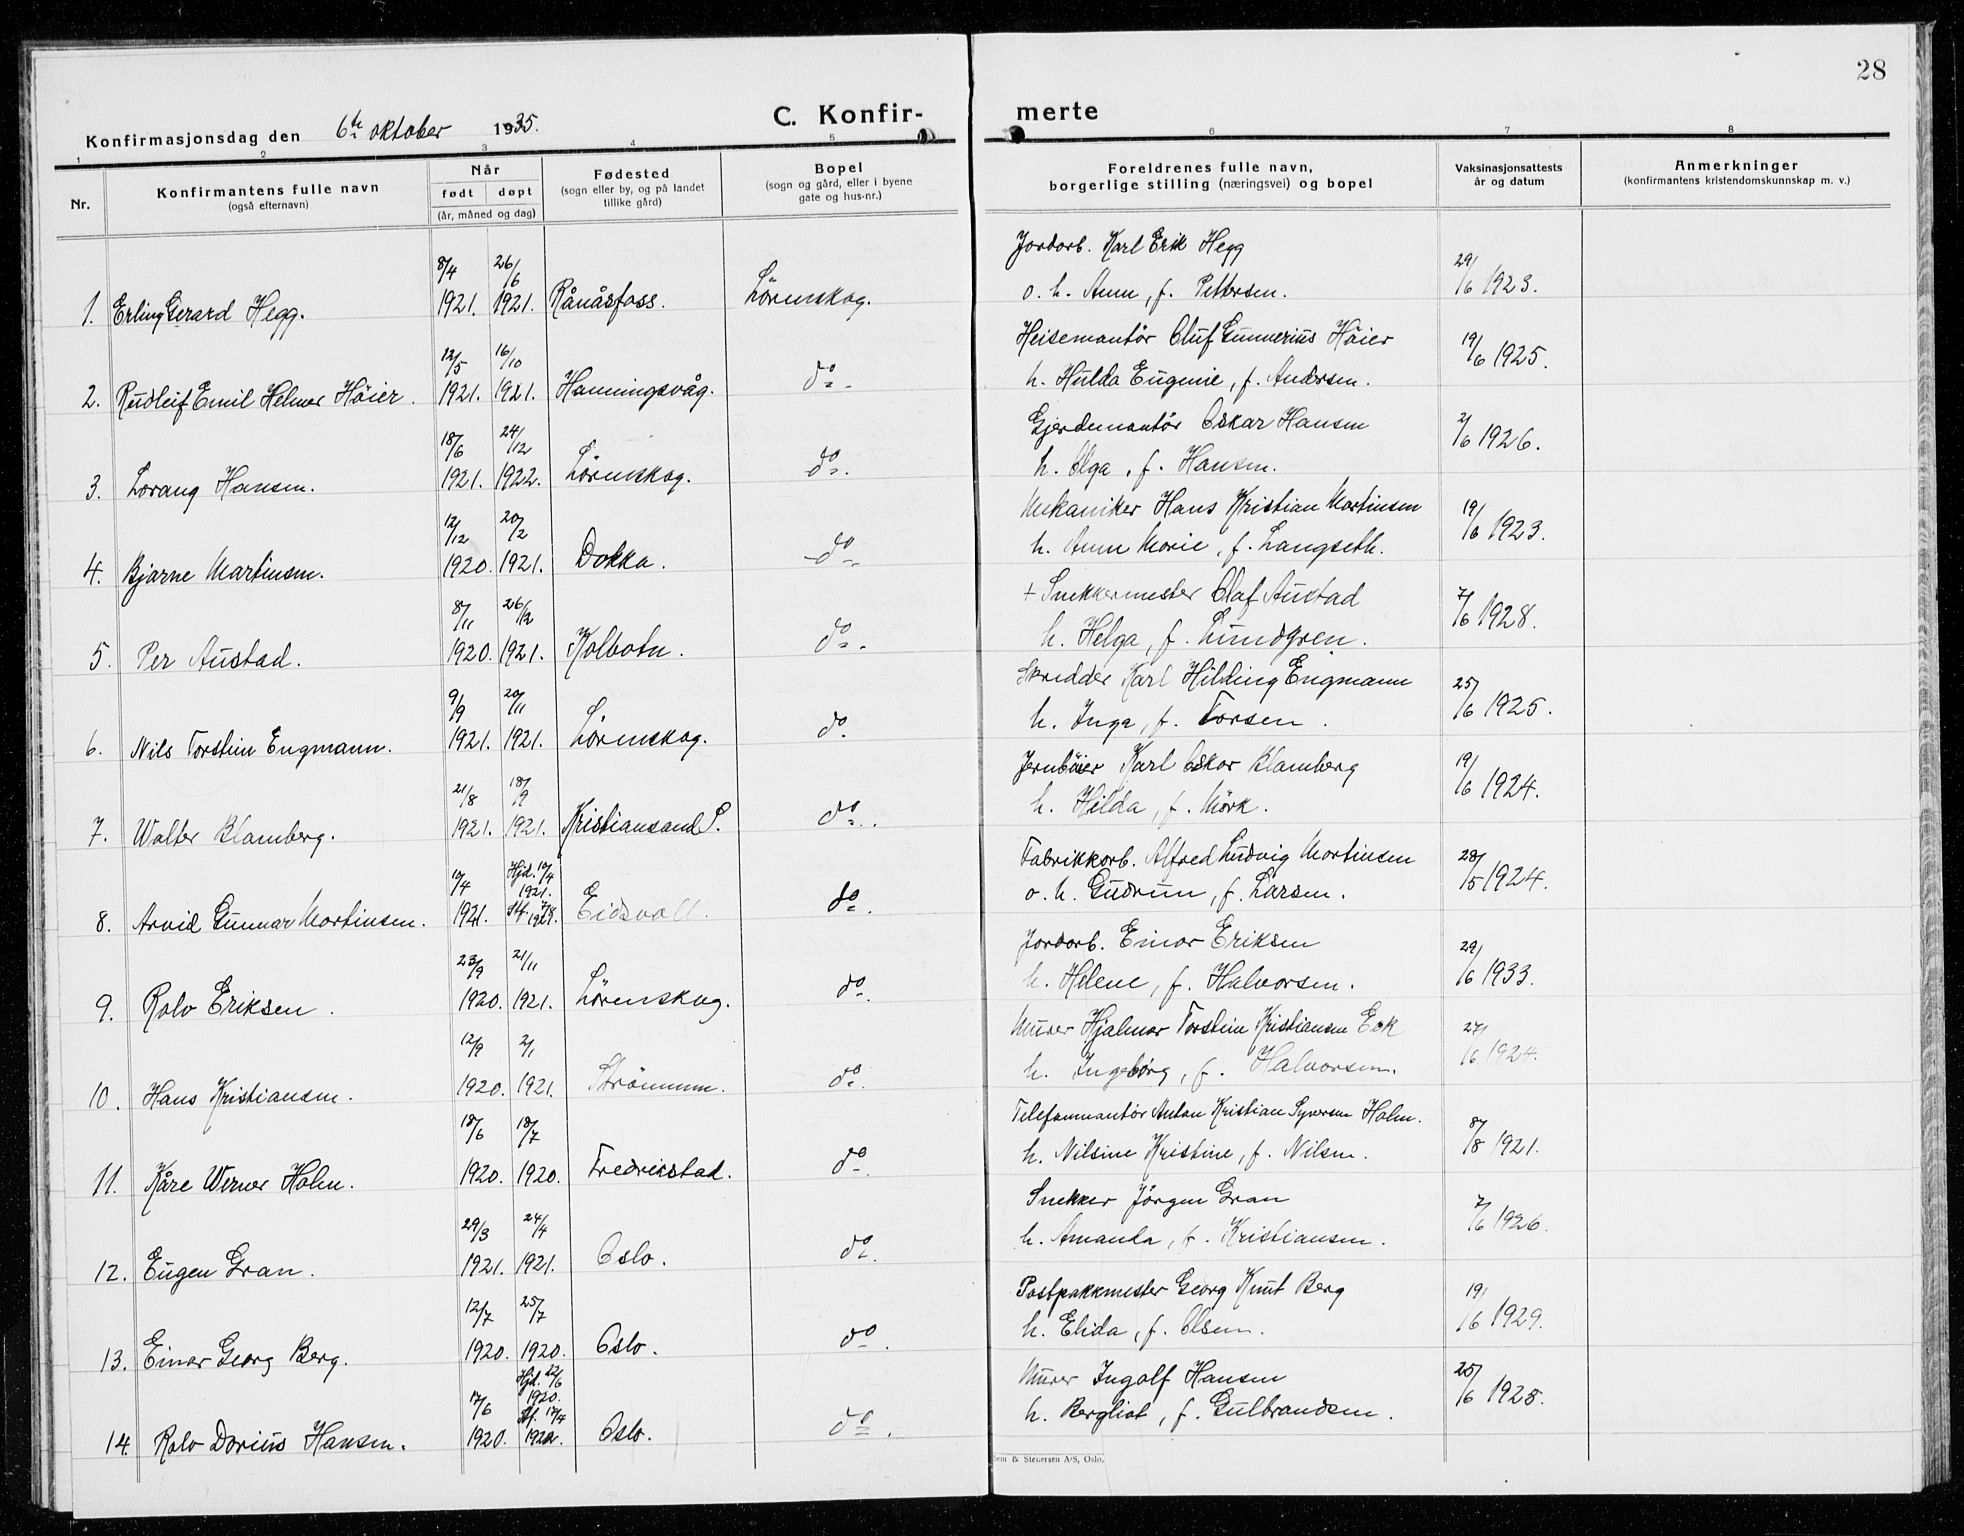 28
Konfirmasjonsdag den 6te oktober 1935.
C. Konfirmerte
1 2 3 4 5 6 7 8
Nr. Konfirmantens fulle navn (også efternavn) Når født døpt (år, måned og dag) Fødested (sogn eller by, og på landet tillike gård) Bopel (sogn og gård, eller i byene gate og hus-nr.) Foreldrenes fulle navn, borgerlige stilling (næringsvei) og bopel Vaksinasjonsattests år og datum Anmerkninger (konfirmantens kristendomskunnskap m. v.)
1. Erling Gerard Hegg. 8/4 1921. 26/6 1921. Rånåsfoss. Lørenskog. Jordarb. Karl Erik Hegg
o. h. Anna, f. Pettersen. 29/6 1923.
2. Rudleif Emil Helmer Höier. 12/5 1921. 16/10 1921. Honningsvåg. do. Heisemontör Oluf Gunnerius Höier
h. Hulda Eugenie, f. Andersen. 19/6 1925.
3. Lorang Hansen. 18/6 1921. 24/12 1922. Lørenskog. do. Gjerdemontör Oskar Hansen
h. Olga, f. Hansen. 2/6 1926.
4. Bjarne Martinsen. 12/12 1920. 20/2 1921. Dokka. do. Mekaniker Hans Kristian Martinsen
h. Anna Marie, f. Langseth. 19/6 1923.
5. Per Austad. 8/11 1920. 26/12 1921. Kolbotn. do. + Snekkermester Olaf Austad
h. Helga, f. Lundgren. 7/6 1928.
6. Nils Torstein Engmann. 9/9 1921. 20/11 1921. Lørenskog. do. Skredder Karl Hilding Engmann
h. Inga, f. Torsen. 25/6 1925.
7. Walter Blamberg. 21/8 1921. 18/9 1921. Kristiansand S. do. Jernbøier Karl Oskar Blamberg
h. Hilda, f. Mörk. 19/6 1924.
8. Arvid Gunnar Martinsen. 10/4 1921. Hjd. 10/4 1921. Stf. 7/8 1921. Eidsvoll. do. Fabrikkarb. Alfred Ludvig Martinsen
o. h. Gudrun, f. Larsen. 28/5 1924.
9. Rolv Eriksen. 23/9 1920. 21/11 1921. Lørenskog. do. Jordarb. Einar Eriksen
h. Helene, f. Halvorsen. 29/6 1933.
10. Hans Kristiansen. 12/9 1920. 2/1 1921. Strömmen. do. Murer Hjalmar Torstein Kristiansen Eek
h. Ingeborg, f. Halvorsen. 27/6 1924.
11. Kåre Werner Holm. 18/6 1920. 18/7 1920. Fredrikstad. do. Telefonmontör Anton Kristian Syversen Holm.
h. Nilsine Kristine, f. Nilsen. 8/8 1921.
12. Eugen Gran. 29/3 1921. 24/4 1921. Oslo. do. Snekker Jörgen Gran
h. Amanda, f. Kristiansen. 7/6 1926.
13. Einar Georg Berg. 12/7 1920. 25/7 1920. Oslo. do. Postpakkmester Georg Knut Berg
h. Elida, f. Olsen. 19/6 1929.
14. Rolv Dorius Hansen. 17/6 1920. Hjd. 22/6 1920. Stf. 17/4 1922. Oslo. do. Murer Ingolf Hansen
h. Bergliot, f. Gulbrandsen. 25/6 1925.
& Stenersen A/S, Oslo.